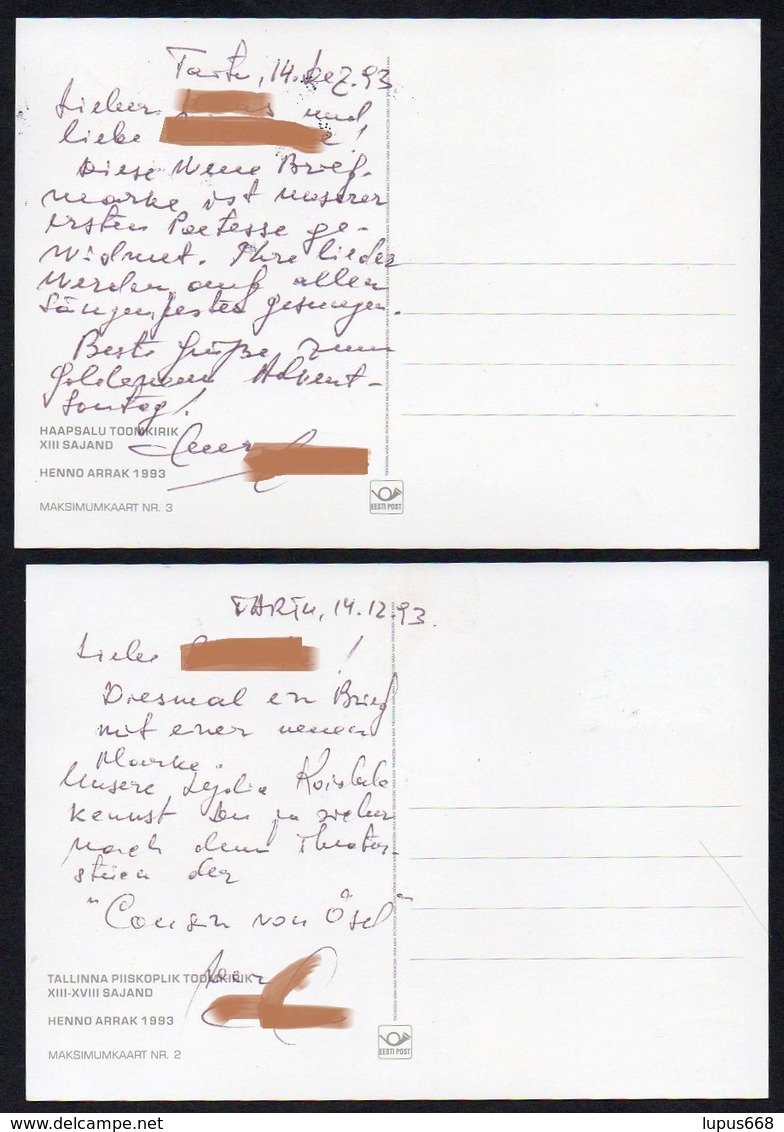 Tartu, 14. Dez. 93
Lieber und
liebe !
Diese neue Brief-
marke ist unserer
ersten Poetesse ge-
widmet. Ihre Lieder
werden auf allen
Sängerfesten gesungen.
Beste Grüße zum
Goldenen Advent-
Sontag!
HAAPSALU TOOMKIRIK
XIII SAJAND
HENNO ARRAK 1993
MAKSIMUMKAART NR. 3
EESTI POST
TARTU, 14.12.93.
Liebe !
Diesmal en Brief
mit einer neuen
Marke.
Unsere Lydia Koidula
kennst Du ja sicher
nach dem Theater-
stück der
"Cousin von Ösel"
TALLINNA PIISKOPLIK TOOMKIRIK
XIII-XVIII SAJAND
HENNO ARRAK 1993
MAKSIMUMKAART NR. 2
EESTI POST
lupus668